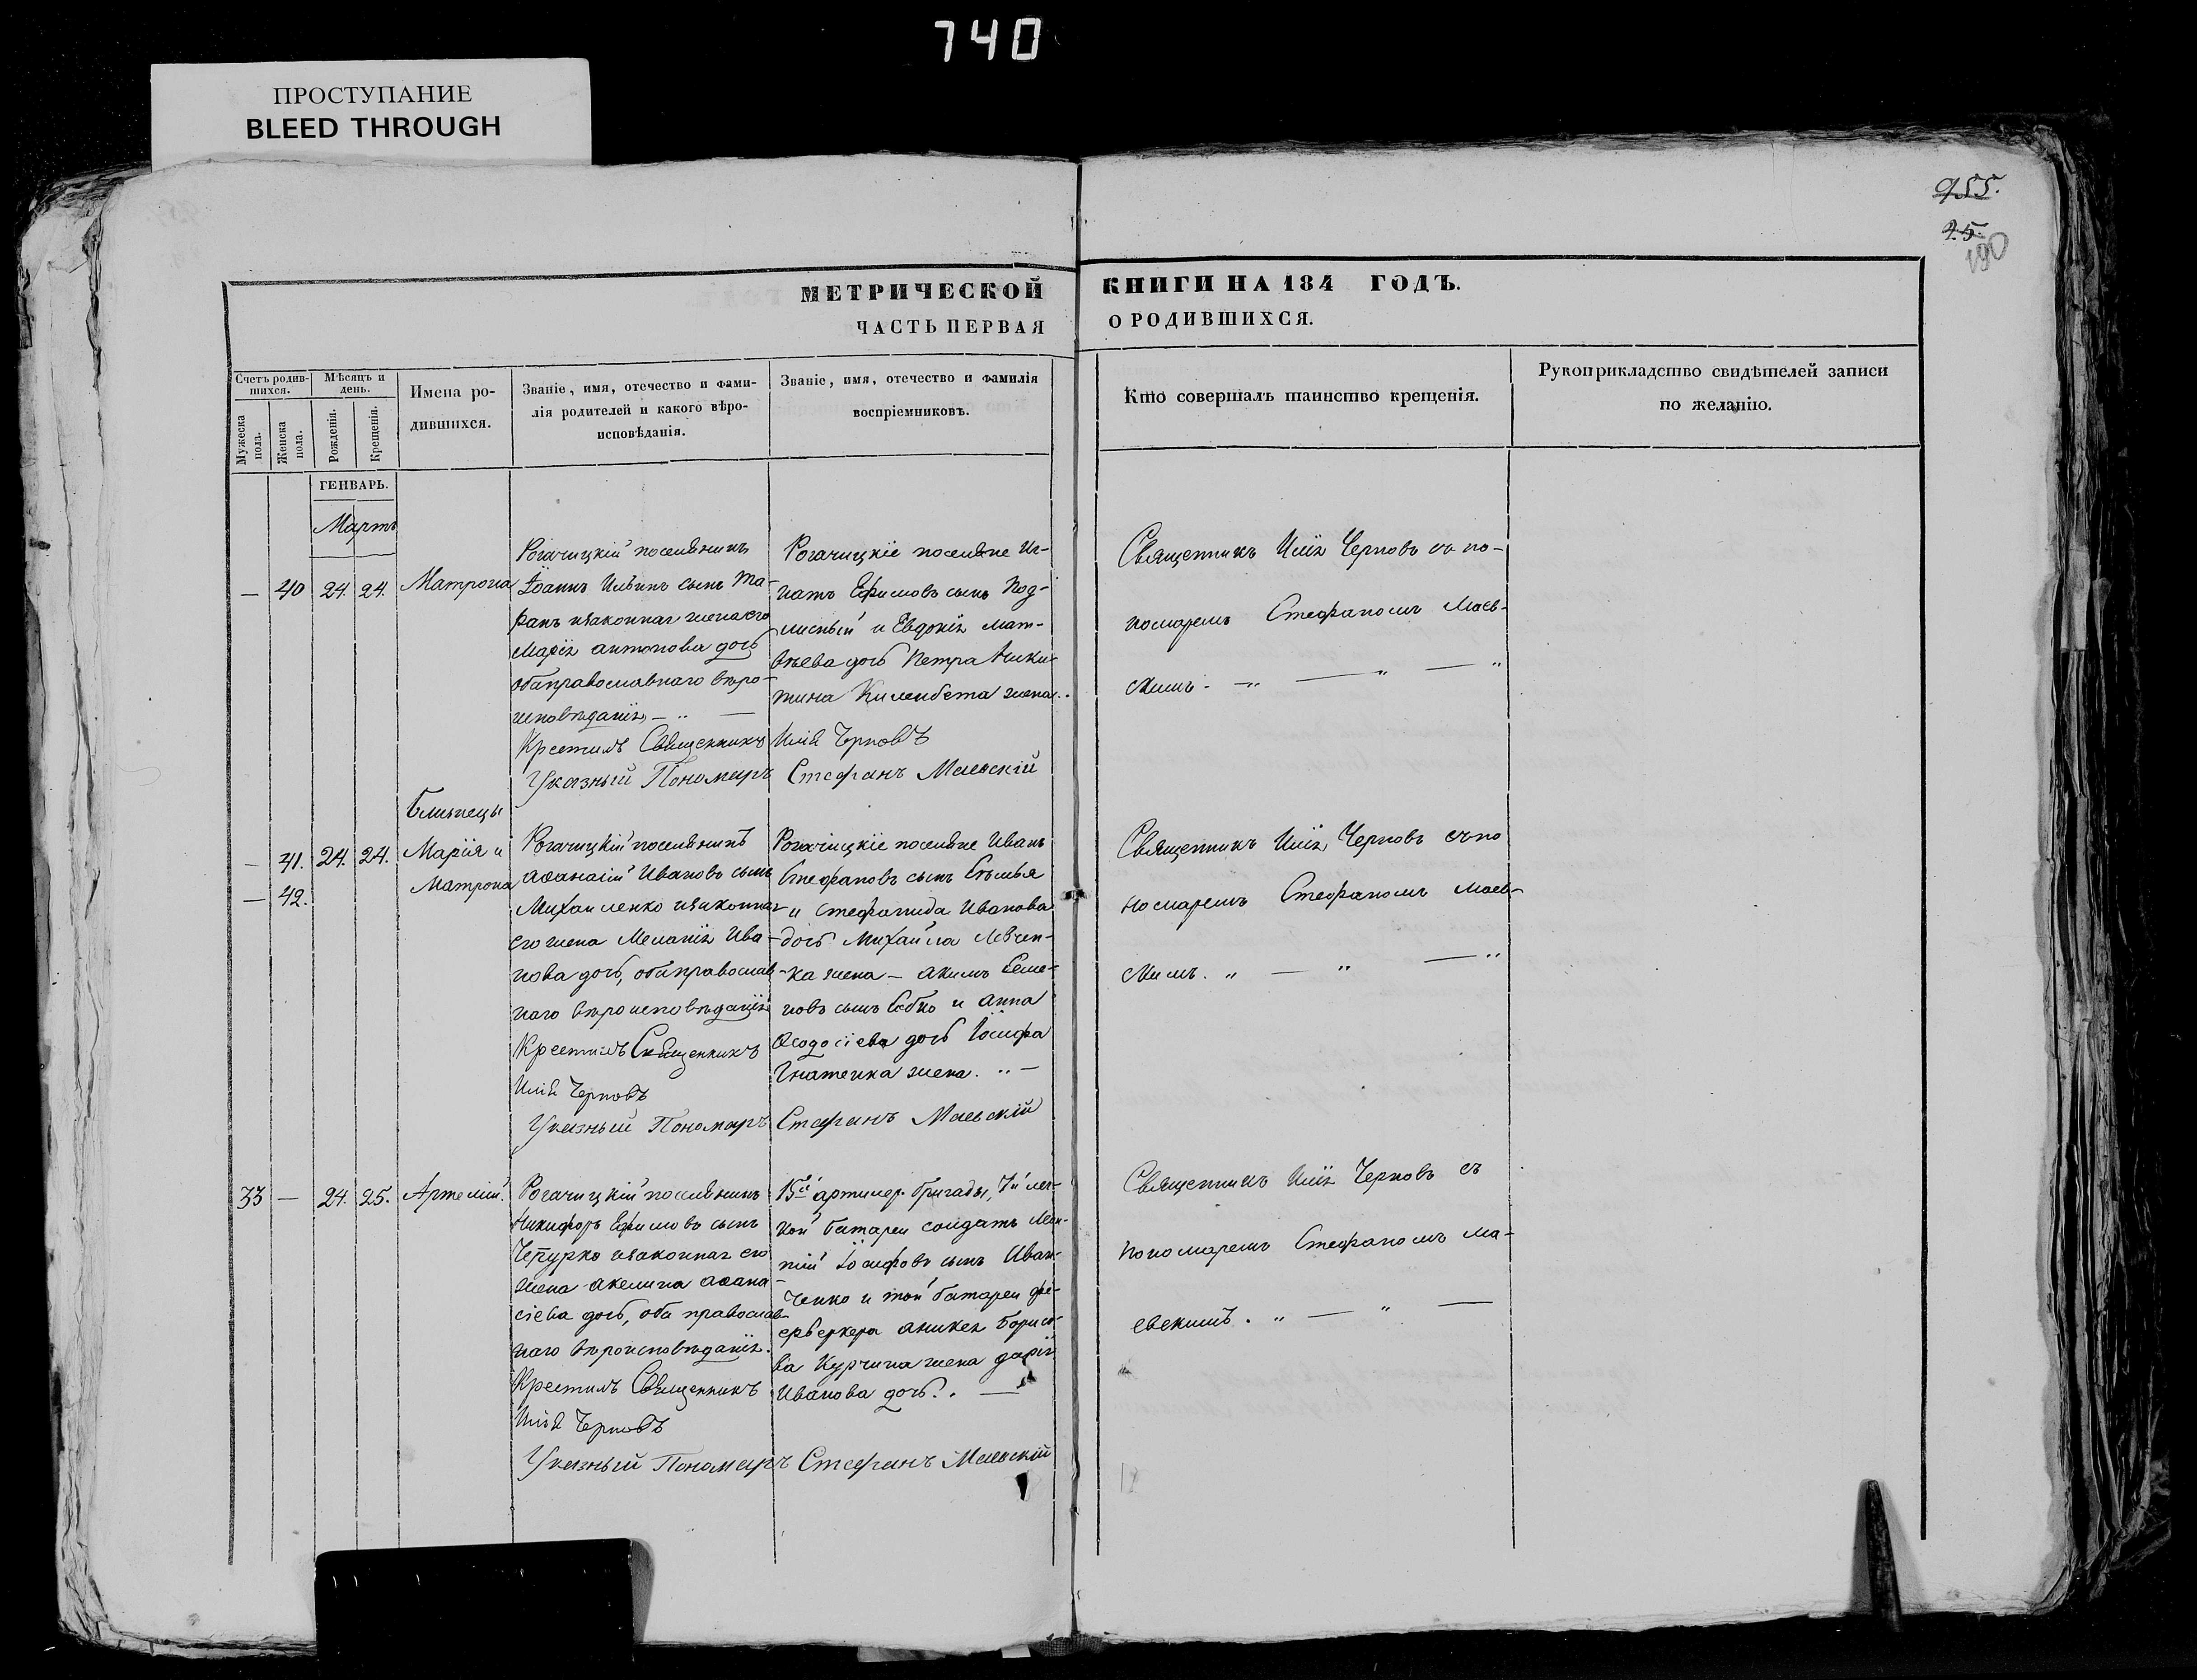 740
ПРОСТУПАНИЕ
BLEED THROUGH
955.
25.
190
МЕТРИЧЕСКОЙ
ЧАСТЬ ПЕРВАЯ
КНИГИ НА 184 ГОДЪ.
О РОДИВШИХСЯ.
Счетъ родив-
шихся.
Мѣсяцъ и
день.
Мужеска
пола.
Женска
пола.
Рожденія.
Крещенія.
Имена ро-
дившихся.
Званіе, имя, отечество и фами-
лія родителей и какого вѣро-
исповѣданія.
Званіе, имя, отечество и фамилія
воспріемниковъ.
Кто совершалъ таинство крещенія.
Рукоприкладство свидѣтелей записи
по желанію.
ГЕНВАРЬ.
Мартъ
— 40 24. 24. Матрона
Рогачицкій поселянинъ
Іоаннъ Ильинъ сынъ Та-
ранъ изаконная жена его
Марія Антонова дочь
оба православнаго вѣро-
исповѣданія, — „ —
Рогачицкіе поселяне Иг-
натъ Ефимовъ сынъ Под-
лисный и Евдокія Мат-
вѣева дочь Петра Ники-
тина Килимбета жена.
Священникъ Илія Черновъ съ по-
номаремъ Стефаномъ Маев-
скимъ. — „ — „ — „
Крестилъ Священникъ Илія Черновъ
Указный Пономаръ Стефанъ Маевскій
— 41. 24. 24.
— 42.
Близнецы
Марія и
Матрона
Рогачицкій поселянинъ
Аѳанасій Ивановъ сынъ
Михайленко изаконная
его жена Меланія Ива-
нова дочь, оба православ-
наго вѣроисповѣданія
Крестилъ Священникъ
Илія Черновъ
Рогачицкіе поселяне Иванъ
Стефановъ сынъ
и Стефанида Иванова
дочь Михайла Левчен-
ка жена — Акимъ Семе-
новъ сынъ и Анна
Ѳеодосіева дочь Іосифа
Гнатенка жена. „ —
Указный Пономаръ Стефанъ Маевскій
Священникъ Илія Черновъ съ по
номаремъ Стефаномъ Маев-
скимъ. „ — „ — „
33 — 24. 25. Артемій.
Рогачицкій поселянинъ
Никифоръ Ефимовъ сынъ
Чепурко изаконная его
жена Акелина Аѳана-
сіева дочь, оба православ-
наго вѣроисповѣданія.
Крестилъ Священникъ
Илія Черновъ
15й артилер. бригады, 7й лег-
кой батареи солдатъ
Іосифовъ сынъ Иван-
ченко и той батареи фе-
ерверкера Аникея Борисо-
ва Курчина жена Дарія
Иванова дочь. . —
Указный Пономаръ Стефанъ Маевскій
Священникъ Илія Черновъ съ
пономаремъ Стефаномъ Ма-
евскимъ. „ — „ —